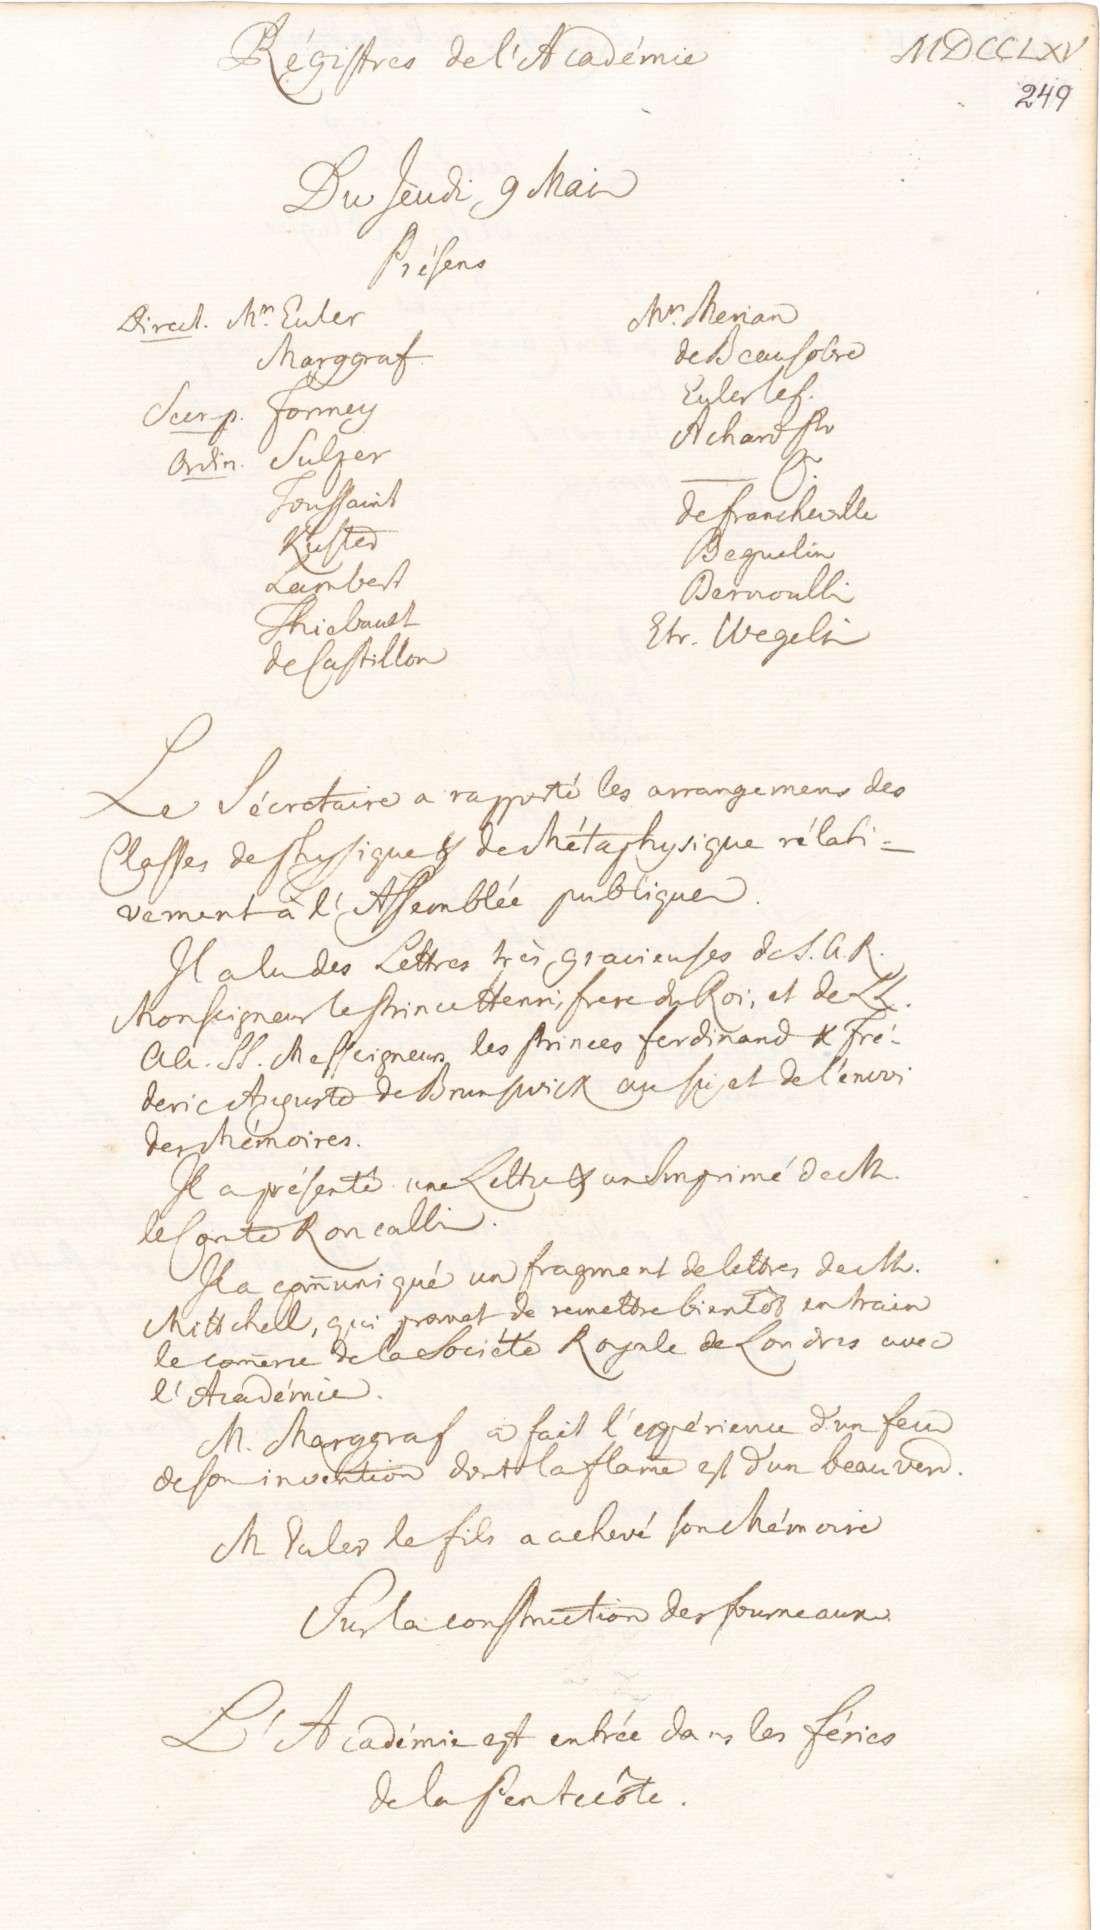 Régistres de l'Académie
MDCCLXV
249
Du Jeudi, 9 Mai
Présens
Direct. Mrs. Euler
Marggraf
Secr. p. Formey
Ordin. Sulzer
Toussaint
Kuster
Lambert
Thiebault
de Castillon
Mrs. Merian
de Beausobre
Euler le f.
Achard Pr
— F.
de Francheville
Beguelin
Bernoulli
Etr. Wegelin
Le Sécretaire a rapporté les arrangemens des
Classes de Physique & de Métaphysique rélati=
vement à l'Assemblée publique.
Il a lu des Lettres très gracieuses de S. A. R.
Monseigneur le Prince Henri, frere du Roi, et de LL.
AA. SS. Messeigneurs les Princes Ferdinand & Fré-
deric Auguste de Brunswick au sujet de l'envoi
des Mémoires.
Il a présenté une Lettre & un Imprimé de M.
le Comte Roncalli.
Il a com̅uniqué un fragment de lettres de M.
Mittchell, qui promet de remettre bientôt en train
le com̅erce de la Société Royale de Londres avec
l'Académie.
M. Marggraf a fait l'expérience d'un feu
de son invention dont la flam̅e est d'un beau verd.
M Euler le fils a achevé son Mémoire
Sur la construction des fourneaux
L'Académie est entrée dans les féries
de la Pentecôte.